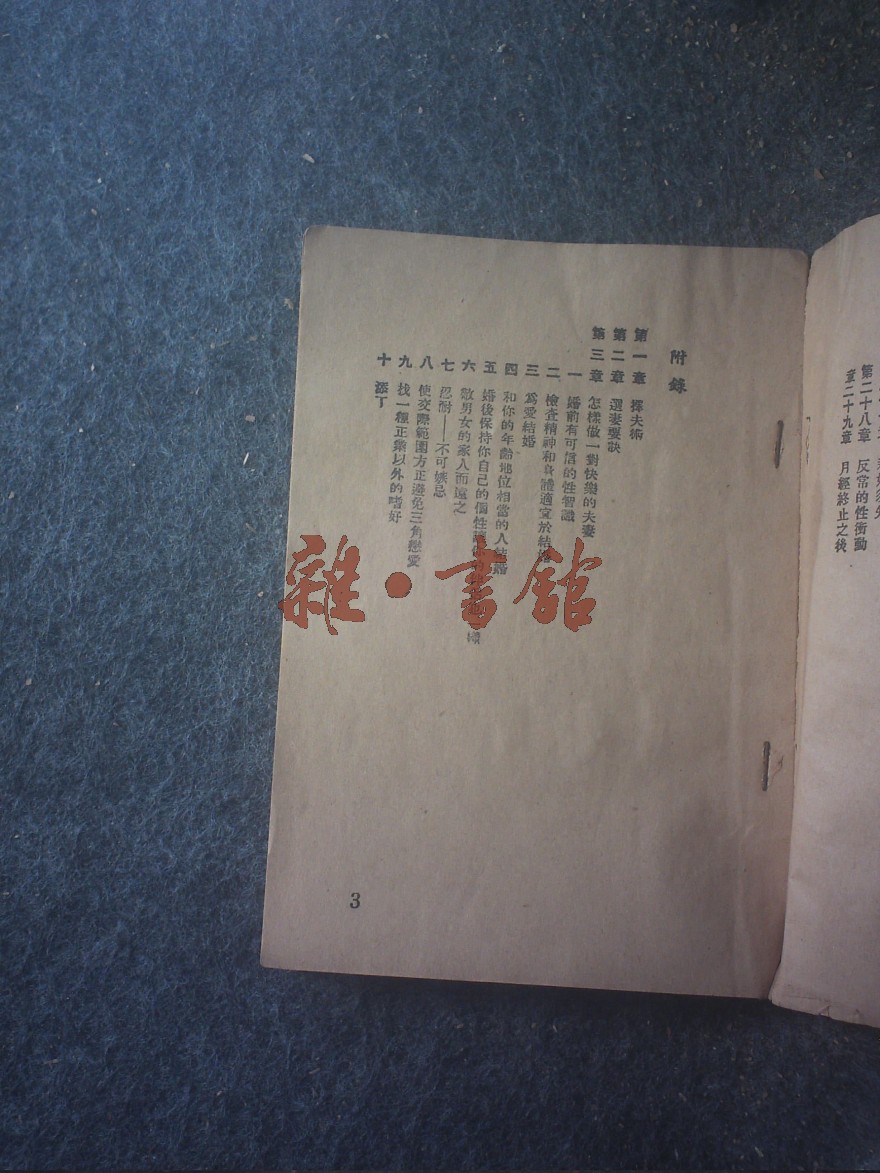 第二十八章 反常的性衝動
章二十九章 月經終止之後
附錄
第一章 擇夫術
第二章 選妻要訣
第三章 怎樣做一對快樂的夫妻
一 婚前有可信的性智識
二 檢查精神和身體適宜於結婚
三 爲愛結婚
四 和你的年齡地位相當的人結婚
五 婚後保持你自己的個性
六 敬男女的家人而遠之
七 忍耐——不可嫉忌
八 使交際範圍方正避免三角戀愛
九 找一種正業以外的嗜好
十 添丁
3
雜·書舘